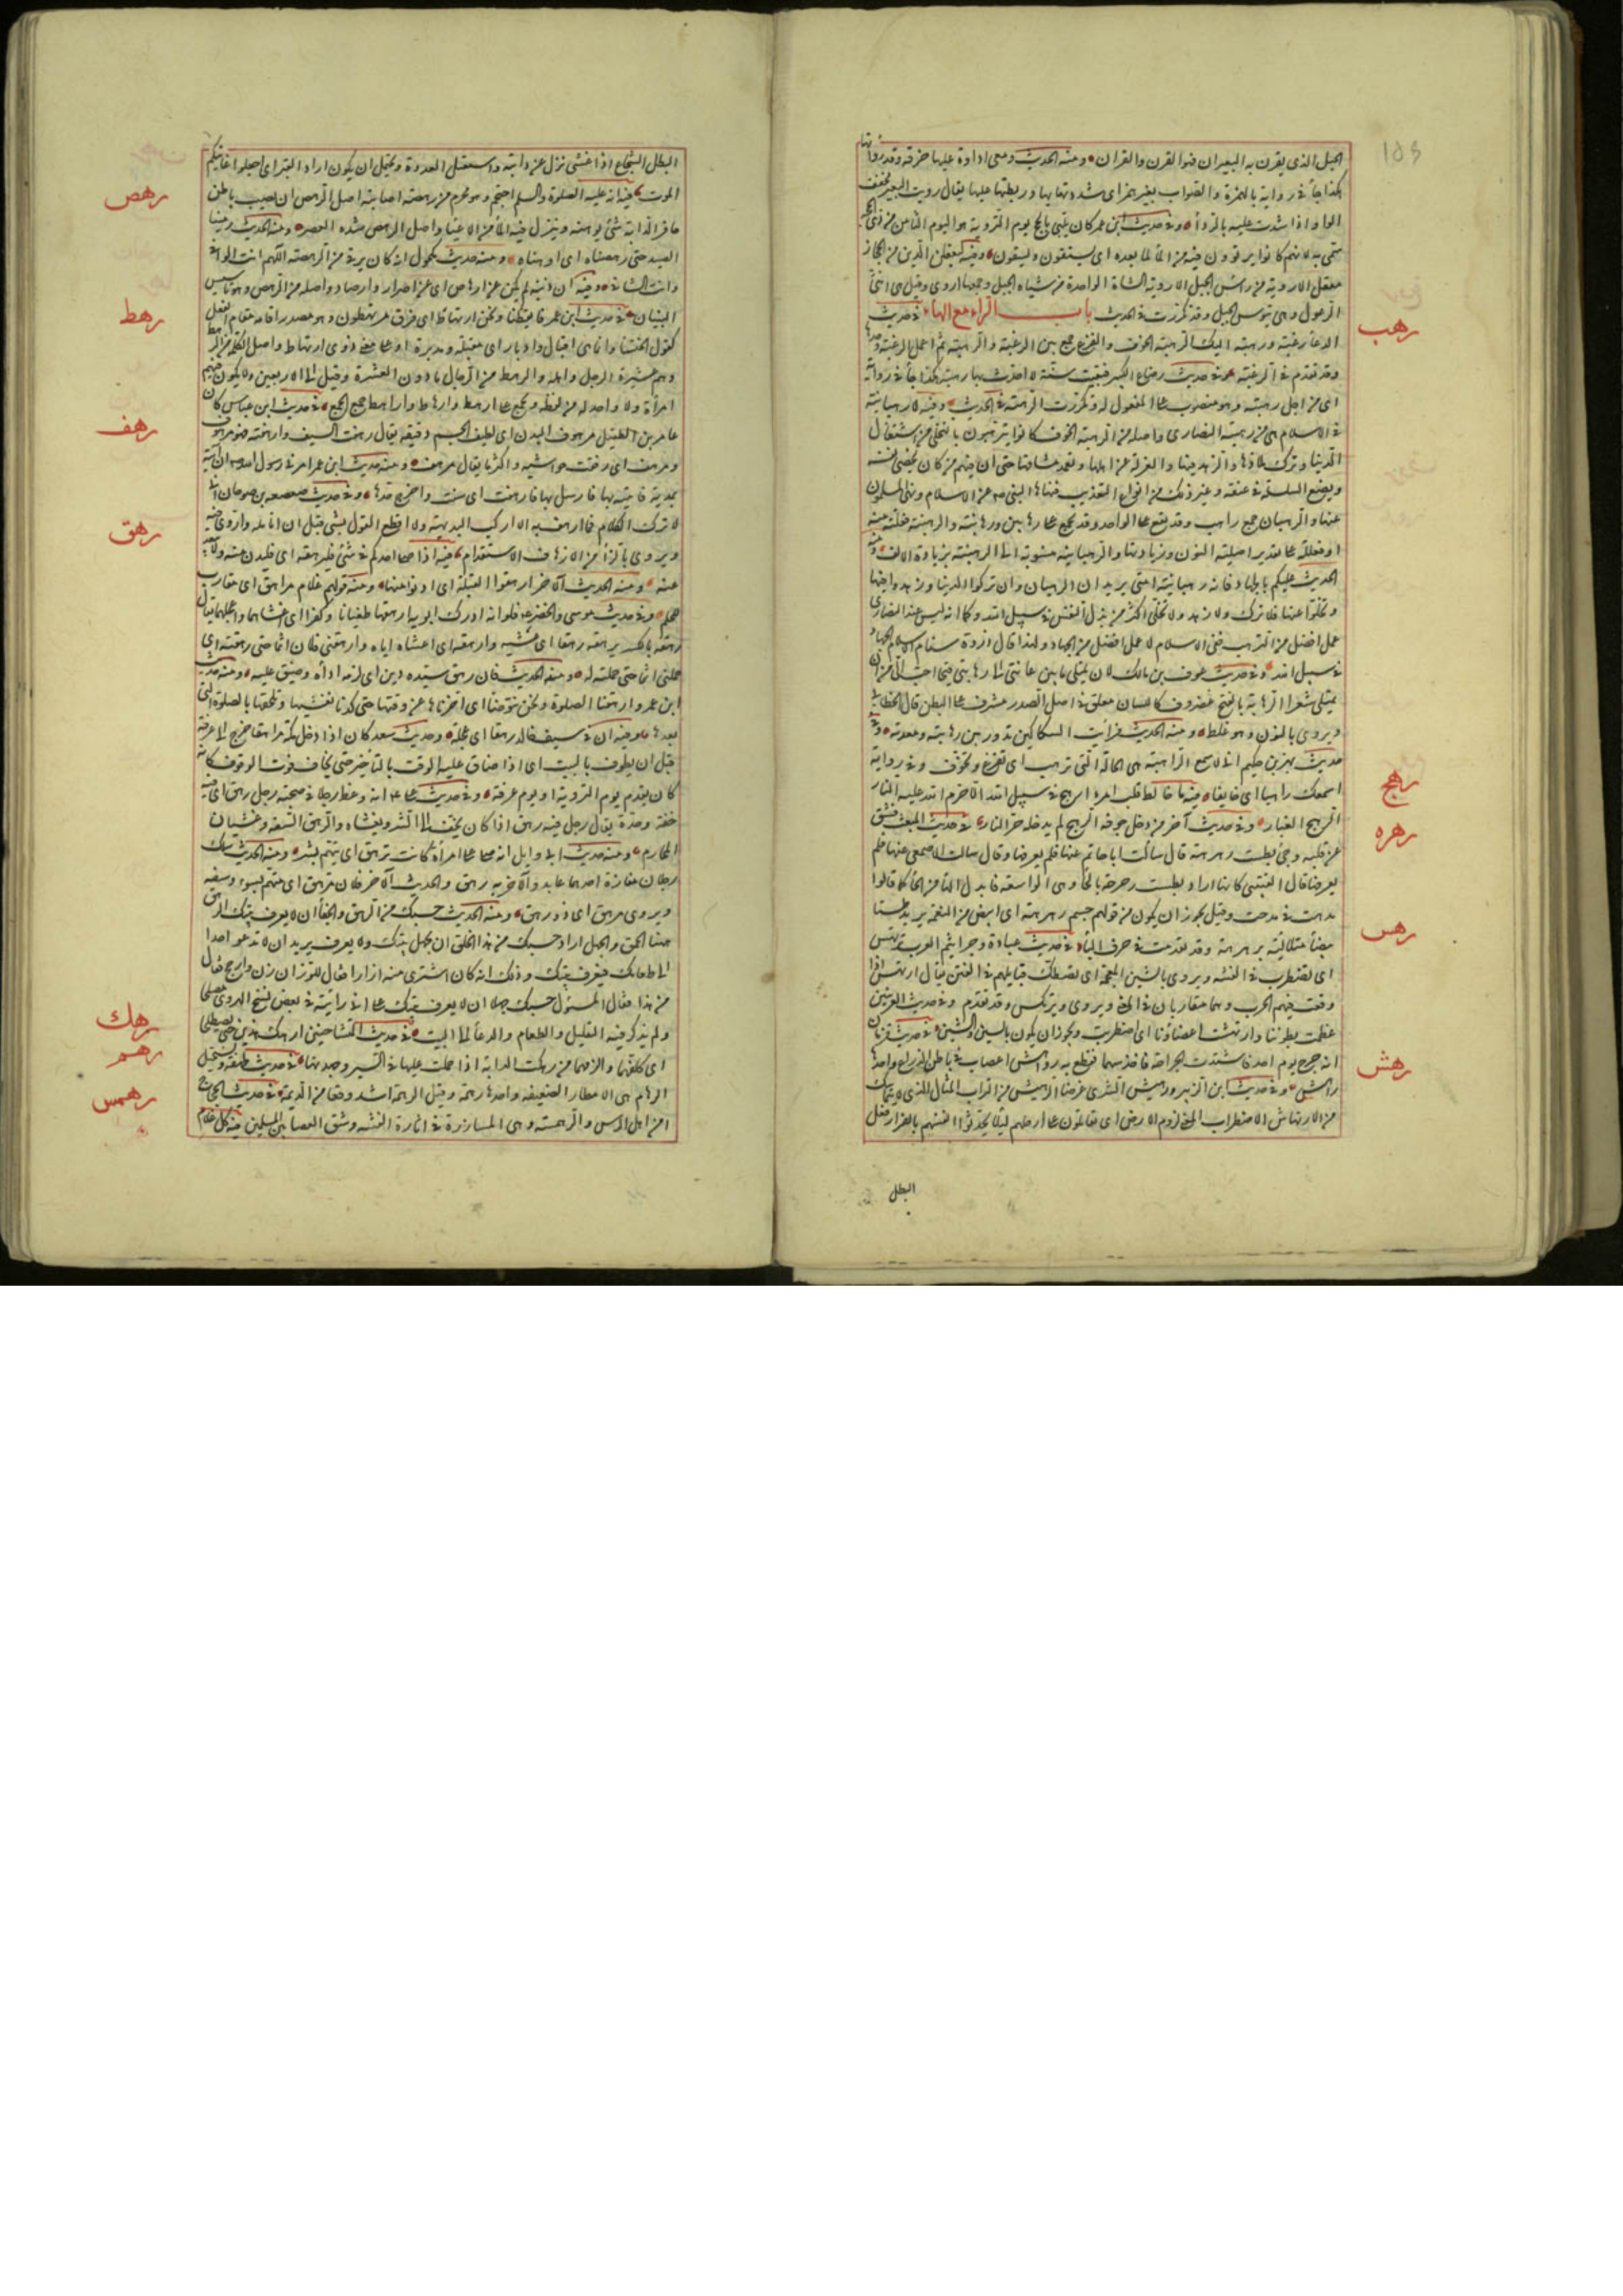 الحبل الذي يقرن به البعيران فهو القرن والقران ومنه الحديث ومعي اداوة عليها خرقة قد روأتها
هكذا جاء في رواية بالهمزة والصواب بغير همز اي شددتها بها وربطتها عليها يقال رويت البعير مخفف
الواو اذا شددت عليه بالرواء وفي حديث ابن عمر كان يلبي بالحج يوم التروية هو اليوم الثامن من ذي الحجة
سمي به لانهم كانوا يرتوون فيه من الماء لما بعده اي يسقون ويستقون وفيه ليعقلن الدين من الحجاز
معقل الاروية من راس الجبل الاروية الشاة الواحدة من شياه الجبل وجمعها اروى وقيل هي انثى
الوعول وهي تيوس الجبل وقد تكررت في الحديث باب الراء مع الهاء في حديث
رهب
الدعاء رغبة ورهبة اليك الرهبة الخوف والفزع جمع بين الرغبة والرهبة ثم اعمل الرغبة وحدها
وقد تقدم في الرغبة وفي حديث رضاع الكبير فبقيت سنة لا احدث بها رهبته هكذا جاء في رواية
اي من اجل رهبته وهو منصوب على المفعول له وتكررت الرهبة في الحديث وفيه لا رهبانية
في الاسلام هي من رهبنة النصارى واصله من الرهبة الخوف كانوا يترهبون بالتخلي من اشغال
الدنيا وترك ملاذها والزهد فيها والعزلة عن اهلها وتعمد مشاقها حتى ان منهم من كان يخصي نفسه
ويضع السلسلة في عنقه وغير ذلك من انواع التعذيب فنفاها النبي صم عن الاسلام ونهى المسلمين
عنها والرهبان جمع راهب وقد يقع على الواحد وقد يجمع على رهابين ورهابنة والرهبنة فعلنة منه
او فعللة على تقدير اصلية النون وزيادتها والرهبانية منسوبة الى الرهبنة بزيادة الالف ومنه
الحديث عليكم بالجهاد فانه رهبانية امتي يريد ان الرهبان وان تركوا الدنيا وزهدوا فيها
وتخلوا عنها فلا ترك ولا زهد ولا تخلي اكثر من بذل النفس في سبيل الله وكما انه ليس عند النصارى
عمل افضل من الترهب ففي الاسلام لا عمل افضل من الجهاد ولهذا قال ذروة سنام الاسلام الجهاد
في سبيل الله وفي حديث عوف بن مالك لان يمتلي ما بين عانتي الى رهابتي قيحا احب الي من ان
يمتلي شعرا الرهابة بالفتح غضروف كاللسان معلق في اصل الصدر مشرف على البطن قال الخطابي
ويروى بالنون وهو غلط ومنه الحديث فرأيت السكاكين تدور بين رهابته ومعدته وفي
حديث بهز بن حكيم اني لاسمع الراهبة هي الحالة التي ترهب اي تفزع وتخوف وفي رواية
رهج
اسمعك راهبا اي خايفا فيه ما خالط قلب امرئ رهج في سبيل الله الا حرم الله عليه النار
رهره
الرهج الغبار وفي حديث آخر من دخل جوفه الرهج لم يدخله حر النار في حديث المبعث فشق
عن قلبه وجئ بطست رهرهة قال سالت ابا حاتم عنها فلم يعرفها وقال سالت الاصمعي عنها فلم
يعرفها قال القتيبي كانه اراد بطست رحرحة بالحاء وهي الواسعة فابدل الهاء من الحاء كما قالوا
مدهت في مدحت وقيل يجوز ان يكون من قولهم جسم رهرهة اي ابيض من النعمة يريد طستا
رهس
بيضاء متلالئة برهرهة وقد تقدمت في حرف الباء في حديث عبادة وجراثيم العرب ترتهس
اي تضطرب في الفتنة ويروى بالشين المعجمة اي تصطك قبايلهم في الفتن يقال ارتهس الناس اذا
وقعت فيهم الحرب وهما متقاربان في المعنى ويروى ويرتكس وقد تقدم وفي حديث العرنيين
عظمت بطوننا وارتهشت اعضاؤنا اي اضطربت ويجوز ان يكون بالسين والشين في حديث قزمان
رهش
انه جرح يوم احد فاشتدت الجراحة فاخذ سهما فقطع به رواهش اعصاب في باطن الذراع واحدها
راهش وفي حديث ابن الزبير ورهيش الثرى عرضا الرهيش من التراب المنثال الذي لا يتماسك
من الارتهاش الاضطراب والمعنى لزوم الارض اي يقاتلون على ارجلهم لئلا يحدثوا انفسهم بالفرار فعل
البطل
البطل الشجاع اذا غشي نزل عن دابته واستقبل العدو ويحتمل ان يكون اراد القبر اي اجعلوا غايتكم
رهص
الموت فيه انه عليه الصلوة والسلم احتجم وهو محرم من رهصة اصابته اصل الرهص ان يصيب باطن
حافر الدابة شئ يوهنه وينزل فيه الماء من الاعياء واصل الرهص شدة العصر ومنه الحديث فرمينا
الصيد حتى رهصناه اي اوهناه ومنه حديث مكحول انه كان يرقي من الرهصة اللهم انت الواقي
وانت الشافي وفيه ان ذنبه لم يكن عن ارهاص اي عن اصرار وارصاد واصله من الرهص وهو تاسيس
رهط
البنيان في حديث ابن عمر فايقظنا ونحن ارتهاط اي فرق مرتهطون وهو مصدر اقامه مقام الفعل
كقول الخنساء وانما هي اقبال وادبار اي مقبلة ومدبرة او على معنى ذوي ارتهاط واصل الكلمة من الرهط
وهم عشيرة الرجل واهله والرهط من الرجال ما دون العشرة وقيل الى الاربعين ولا يكون فيهم
امرأة ولا واحد له من لفظه ويجمع على ارهط وارهاط واراهط جمع الجمع في حديث ابن عباس كان
رهف
عامر بن الطفيل مرهوف البدن اي لطيف الجسم دقيقه يقال رهفت السيف وارهفته فهو مرهوف
ومرهف اي رققت حواشيه واكثر ما يقال مرهف ومنه حديث ابن عمر امرني رسول الله صم ان آتيه
بمدية فاتيته بها فارسل بها فارهفت اي سنت واخرج حدها وفي حديث صعصعة بن صوحان اني
لاترك الكلام فما ارهف به الا اركب البديهة ولا اقطع القول بشئ قبل ان اتامله واروي فيه
رهق
ويروى بالزاء من الازهاف الاستقدام فيه اذا صلى احدكم في شئ فليرهقه اي فليدن منه ولا يبعد
عنه ومنه الحديث الآخر ارهقوا القبلة اي ادنوا منها ومنه قولهم غلام مراهق اي مقارب
للحلم وفي حديث موسى والخضر عه فلو انه ادرك ابويه ارهقهما طغيانا وكفرا اي اغشاهما واعجلهما يقال
رهقه بالكسر يرهقه رهقا اي غشيه وارهقه اي اغشاه اياه وارهقني فلان اثما حتى رهقته اي
حملني اثما حتى حملته له ومنه الحديث فان رهق سيده دين اي لزمه اداؤه وضيق عليه ومنه حديث
ابن عمر وارهقتنا الصلوة ونحن نتوضأ اي اخرناها عن وقتها حتى كدنا نغشيها ونلحقها بالصلوة التي
بعدها وفيه ان في سيف خالد رهقا اي عجلة وحديث سعد كان اذا دخل مكة مراهقا خرج الى عرفة
قبل ان يطوف بالبيت اي اذا ضاق عليه الوقت بالتاخير حتى يخاف فوت الوقوف كانه
كان يقدم يوم التروية او يوم عرفة وفي حديث علي عه انه وعظ رجلا في صحبة رجل رهق اي فيه
خفة وحدة يقال رجل فيه رهق اذا كان يخف الى الشر ويغشاه والرهق السفه وغشيان
المحارم ومنه حديث ابي وايل انه صلى على امرأة كانت ترهق اي تتهم بشر ومنه الحديث سلك
رجلان مفازة احدهما عابد والآخر به رهق والحديث الآخر فلان مرهق اي متهم بسوء وسفه
ويروى مرهق اي ذو رهق ومنه الحديث حسبك من الرهق والجفاء ان لا يعرف بيتك الرهق
ههنا الحمق والجهل اراد حسبك من هذا الخلق ان يجهل بيتك ولا يعرف يريد ان لا تدعو احدا
الى طعامك فيعرف بيتك وذلك انه كان اشترى منه ازارا فقال للوزان زن وارجح فقال
من هذا فقال المسئول حسبك جهلا ان لا يعرف بيتك على اني رايته في بعض نسخ الهروي مصلحا
رهك
ولم يذكر فيه التعليل والطعام والدعاء الى البيت في حديث المتشاحنين ارهك هذين حتى يصطلحا
رهم
اي كلفهما والزمهما من رهكت الدابة اذا حملت عليها في السير وجهدتها في حديث طهفة ونستخيل
رهمس
الرهام هي الامطار الضعيفة واحدها رهمة وقيل الرهمة اشد وقعا من الديمة في حديث الحجاج
امن اهل الرس والرهمسة وهي المسارة في اثارة الفتنة وشق العصا بين المسلمين فيه كل غلام